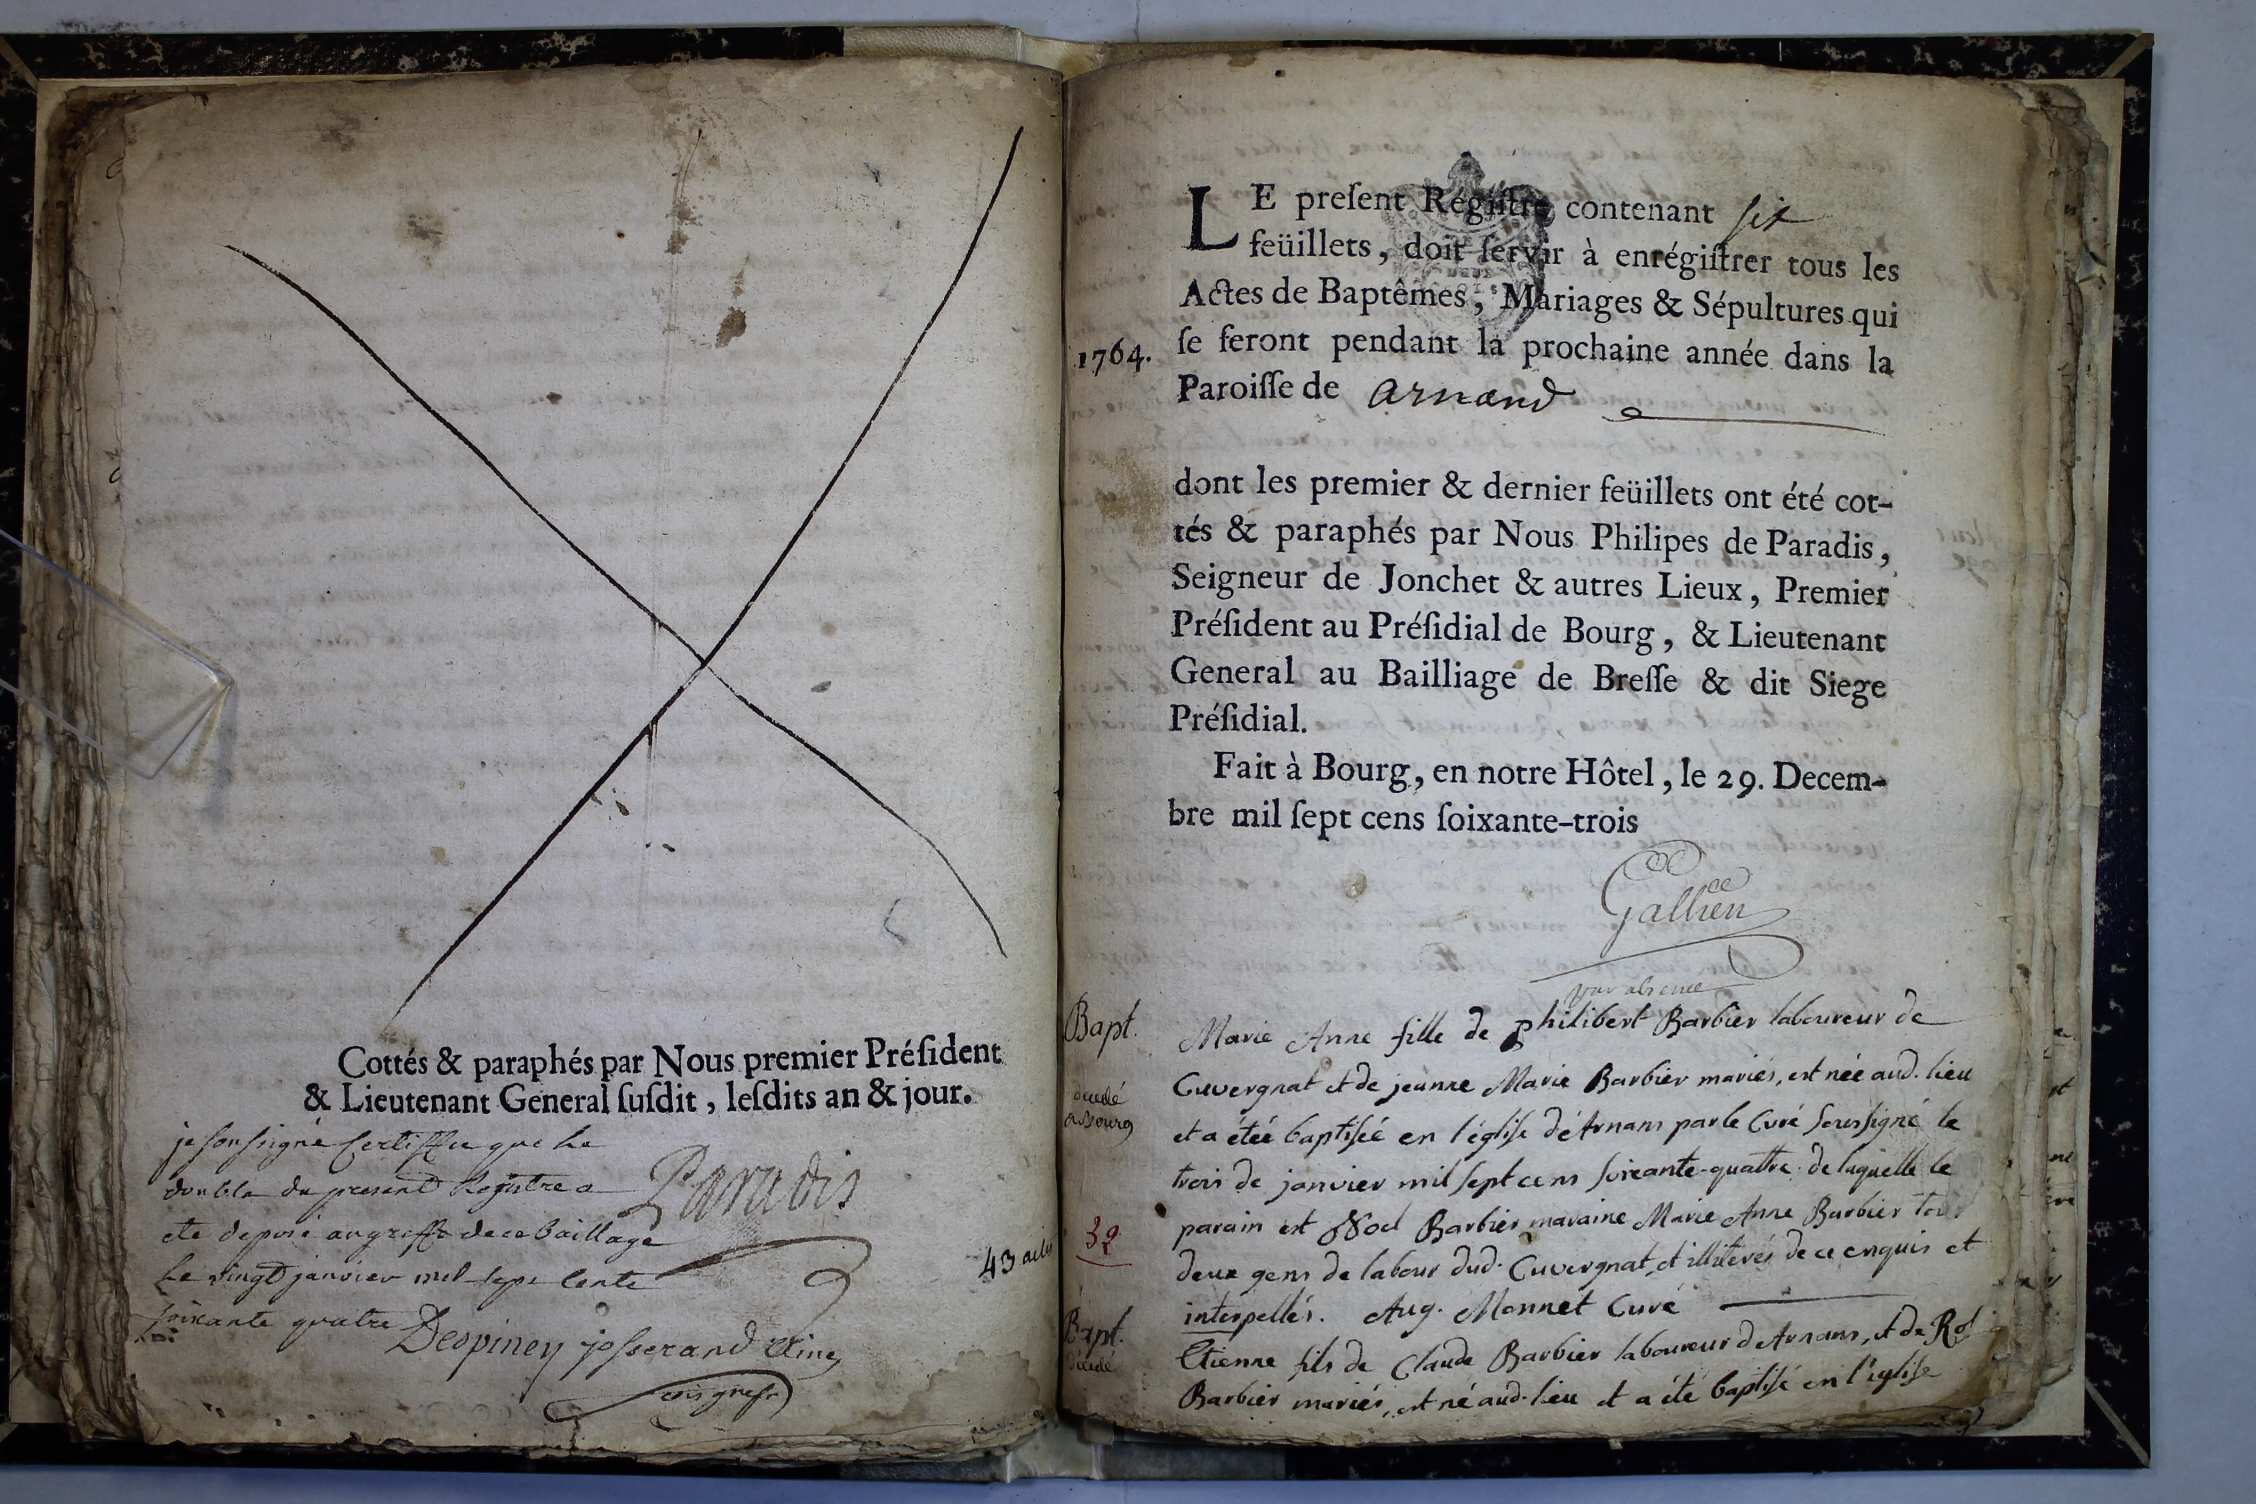 Cottés & paraphés par Nous premier Préſident
& Lieutenant General ſuſdit, leſdits an & jour.
je sousigné Certiffie que Le
double du present Registre a
ete deposé au greffe de ce bailliage
Le vingt janvier mil sept Cents
soixante quatre
Paradis
Despiney josserand
43 actes
LE preſent Régiſtre contenant six
feüillets, doit ſervir à enrégiſtrer tous les
Actes de Baptêmes, Mariages & Sépultures qui
1764. ſe feront pendant la prochaine année dans la
Paroiſſe de Arnand
dont les premier & dernier feüillets ont été cot-
tés & paraphés par Nous Philipes de Paradis,
Seigneur de Jonchet & autres Lieux, Premier
Préſident au Préſidial de Bourg, & Lieutenant
General au Bailliage de Breſſe & dit Siege
Préſidial.
Fait à Bourg, en notre Hôtel, le 29. Decem-
bre mil ſept cens ſoixante-trois
Gallien
par absence
Bapt. Marie Anne fille de philibert Barbier laboureur de
Cuvergnat et de jeanne Marie Barbier mariés, est née aud. lieu
decedé
a Bourg
et a étée baptisée en l'église d'Arnans par le Curé soussigné le
trois de janvier mil sept cens soixante-quattre de laquelle le
parain est Barbier maraine Marie Anne Barbier tous
32
deux gens de labour dud. Cuvergnat et illiterés de ce enquis et
interpellés. Aug. Monnet Curé
Bapt.
decedé
Etienne fils de Claude Barbier laboureur d'Arnans, et de
Barbier mariés, est né aud. lieu et a été baptisé en l'église